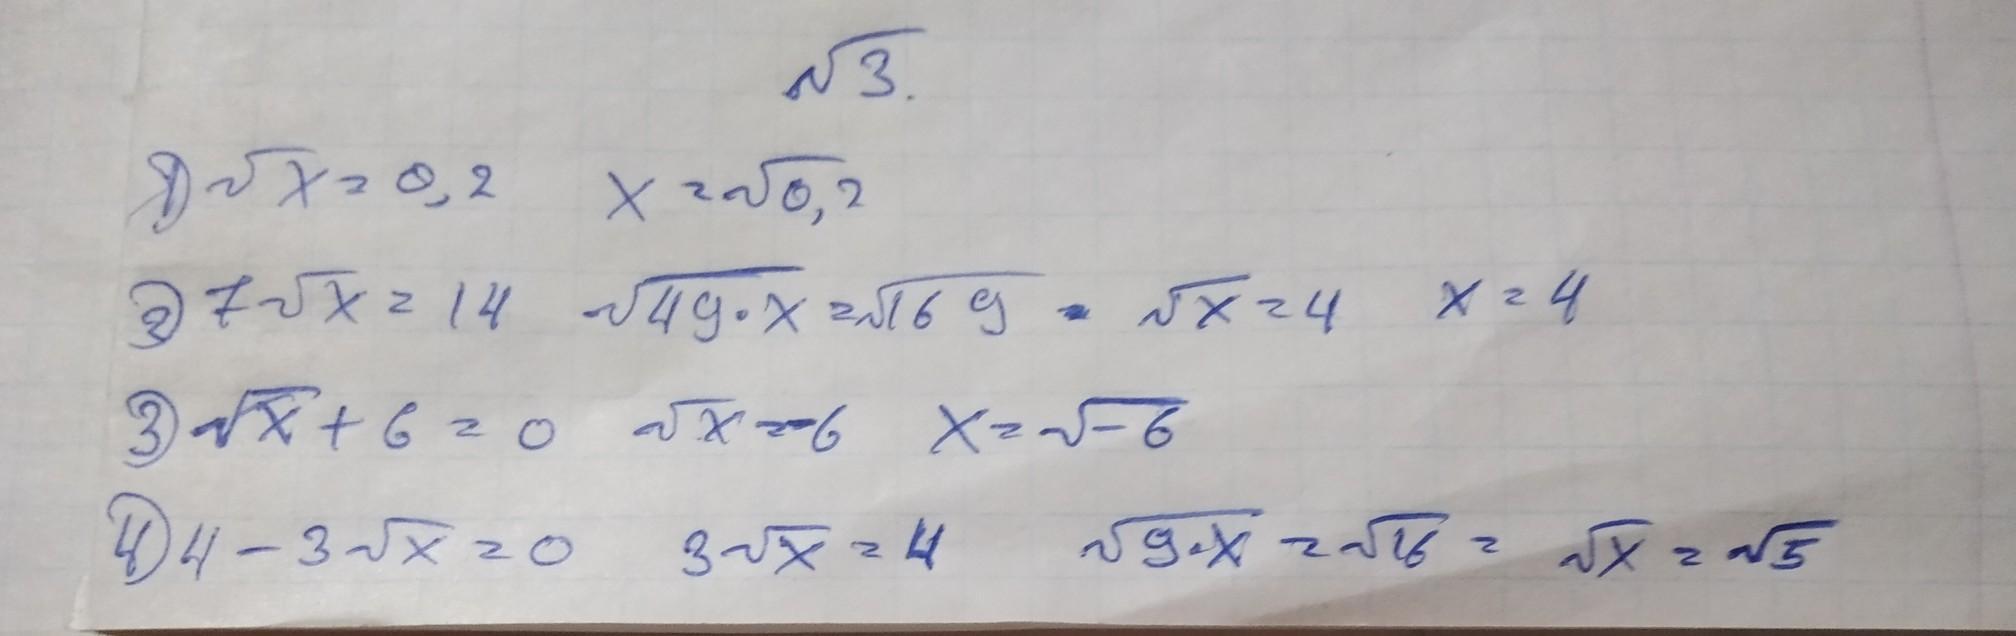 √3.
1) √x = 0,2 x = √0,2
2) 7√x = 14 √49·x = √169 = √x = 4 x = 4
3) √x + 6 = 0 √x = -6 x = √-6
4) 4 - 3√x = 0 3√x = 4 √9·x = √16 = √x = √5